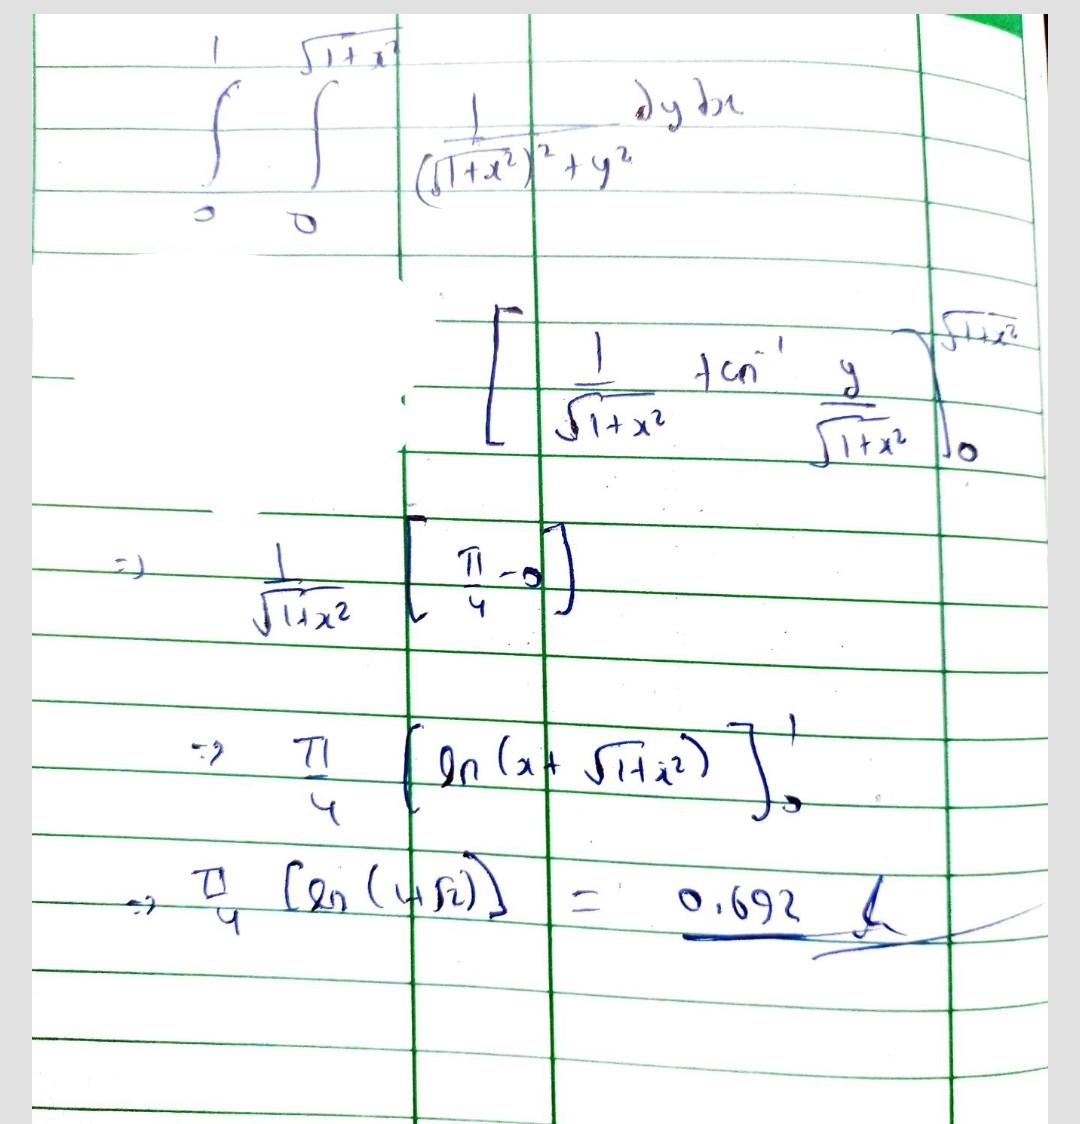 ∫₀¹ ∫₀^√(1+x²) 1/((√(1+x²))² + y²) dy dx
[ 1/√(1+x²) tan⁻¹ y/√(1+x²) ]₀^√(1+x²)
=> 1/√(1+x²) [ π/4 - 0 ]
=> π/4 [ ln (x + √(1+x²) ) ]₀¹
=> π/4 [ln (1+√2)] = 0.692